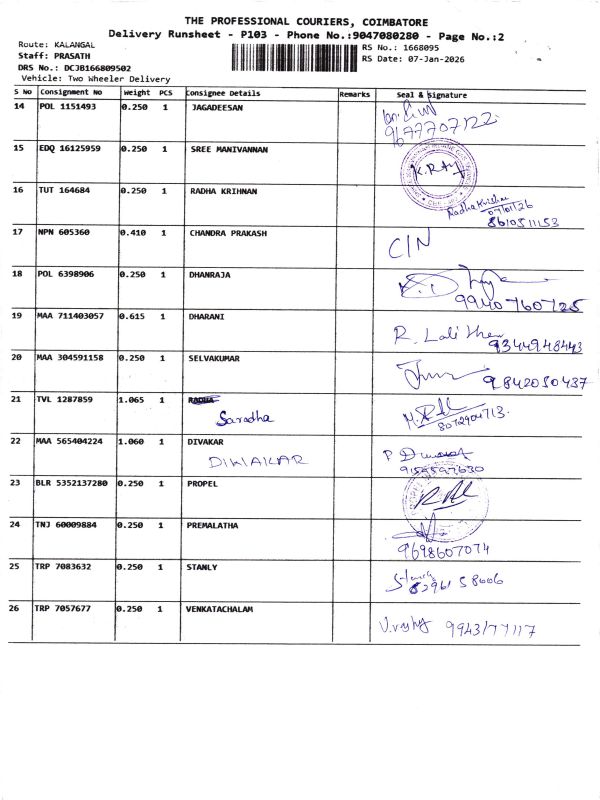 THE PROFESSIONAL COURIERS, COIMBATORE
Delivery Runsheet - P103 - Phone No.:9047080280 - Page No.:2
Route: KALANGAL
RS No.: 1668095
Staff: PRASATH
RS Date: 07-Jan-2026
DRS No.: DCJB166809502
Vehicle: Two Wheeler Delivery
S No Consignment No Weight PCS Consignee Details Remarks Seal & Signature
14 POL 1151493 0.250 1 JAGADEESAN
9677707122
15 EDQ 16125959 0.250 1 SREE MANIVANNAN
K.R
16 TUT 164684 0.250 1 RADHA KRIHNAN
Radha Krishna
07/01/26
8610511153
17 NPN 605360 0.410 1 CHANDRA PRAKASH
C/N
18 POL 6398906 0.250 1 DHANRAJA
9940760725
19 MAA 711403057 0.615 1 DHARANI
R. Lali
9344948443
20 MAA 304591158 0.250 1 SELVAKUMAR
9842050437
21 TVL 1287859 1.065 1 RADHA
Saradha
8072904713
22 MAA 565404224 1.060 1 DIVAKAR
DIWAKAR
P D
9159597630
23 BLR 5352137280 0.250 1 PROPEL
24 TNJ 60009884 0.250 1 PREMALATHA
9698607074
25 TRP 7083632 0.250 1 STANLY
82961 58606
26 TRP 7057677 0.250 1 VENKATACHALAM
9943177117